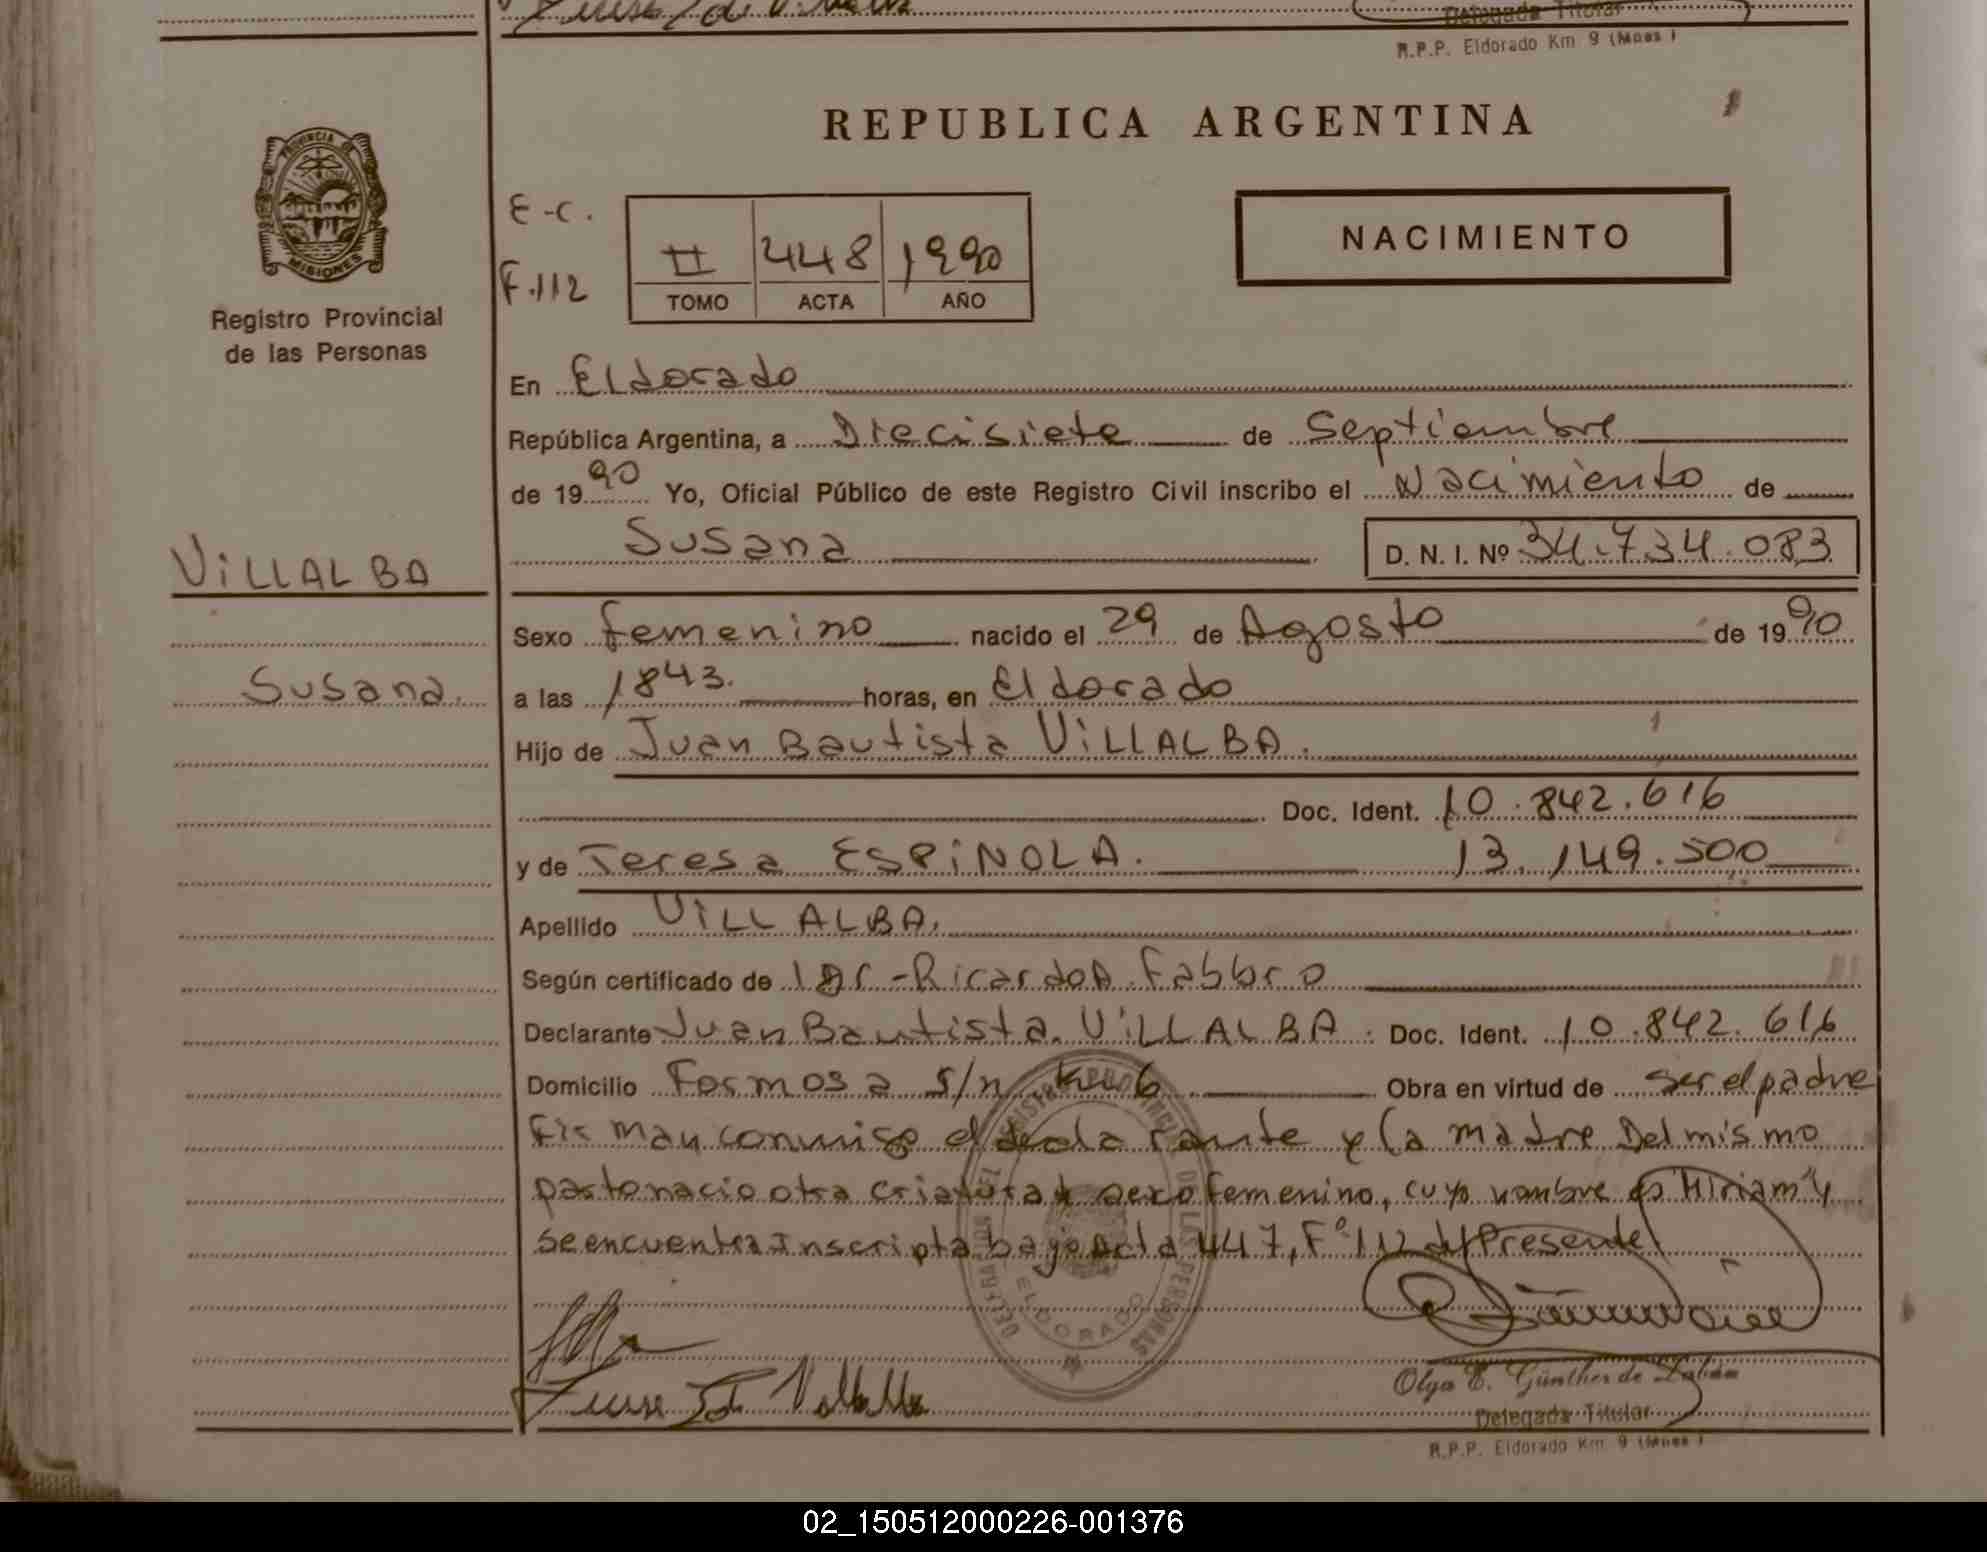 Delegada Titular
R.P.P. Eldorado Km 9 (Mnes)
REPUBLICA ARGENTINA
PROVINCIA DE
MISIONES
Registro Provincial
de las Personas
E-C.
F.112
II 448 1990
TOMO ACTA AÑO
NACIMIENTO
En Eldorado
República Argentina, a Diecisiete de Septiembre
de 1990 Yo, Oficial Público de este Registro Civil inscribo el Nacimiento de
Susana D. N. I. Nº 34.734.083
VILLALBA
Susana.
Sexo femenino nacido el 29 de Agosto de 1990
a las 1843. horas, en Eldorado
Hijo de Juan Bautista VILLALBA.
Doc. Ident. 10.842.616
y de Teresa ESPINOLA. 13.149.500
Apellido VILLALBA.
Según certificado de Dr-Ricardo A. Fabbro
Declarante Juan Bautista VILLALBA. Doc. Ident. 10.842.616
Domicilio Formosa s/n Km 6 Obra en virtud de ser el padre
Firman conmigo el declarante y la madre Del mismo
parto nacio otra criatura sexo femenino, cuyo nombre es "Miriam" y
se encuentra Inscripta bajo Acta 447, Fº 112 del Presente
DE LAS PERSONAS
ELDORADO
Olga E. Günther de
Delegada Titular
R.P.P. Eldorado Km 9 (Mnes)
02_150512000226-001376